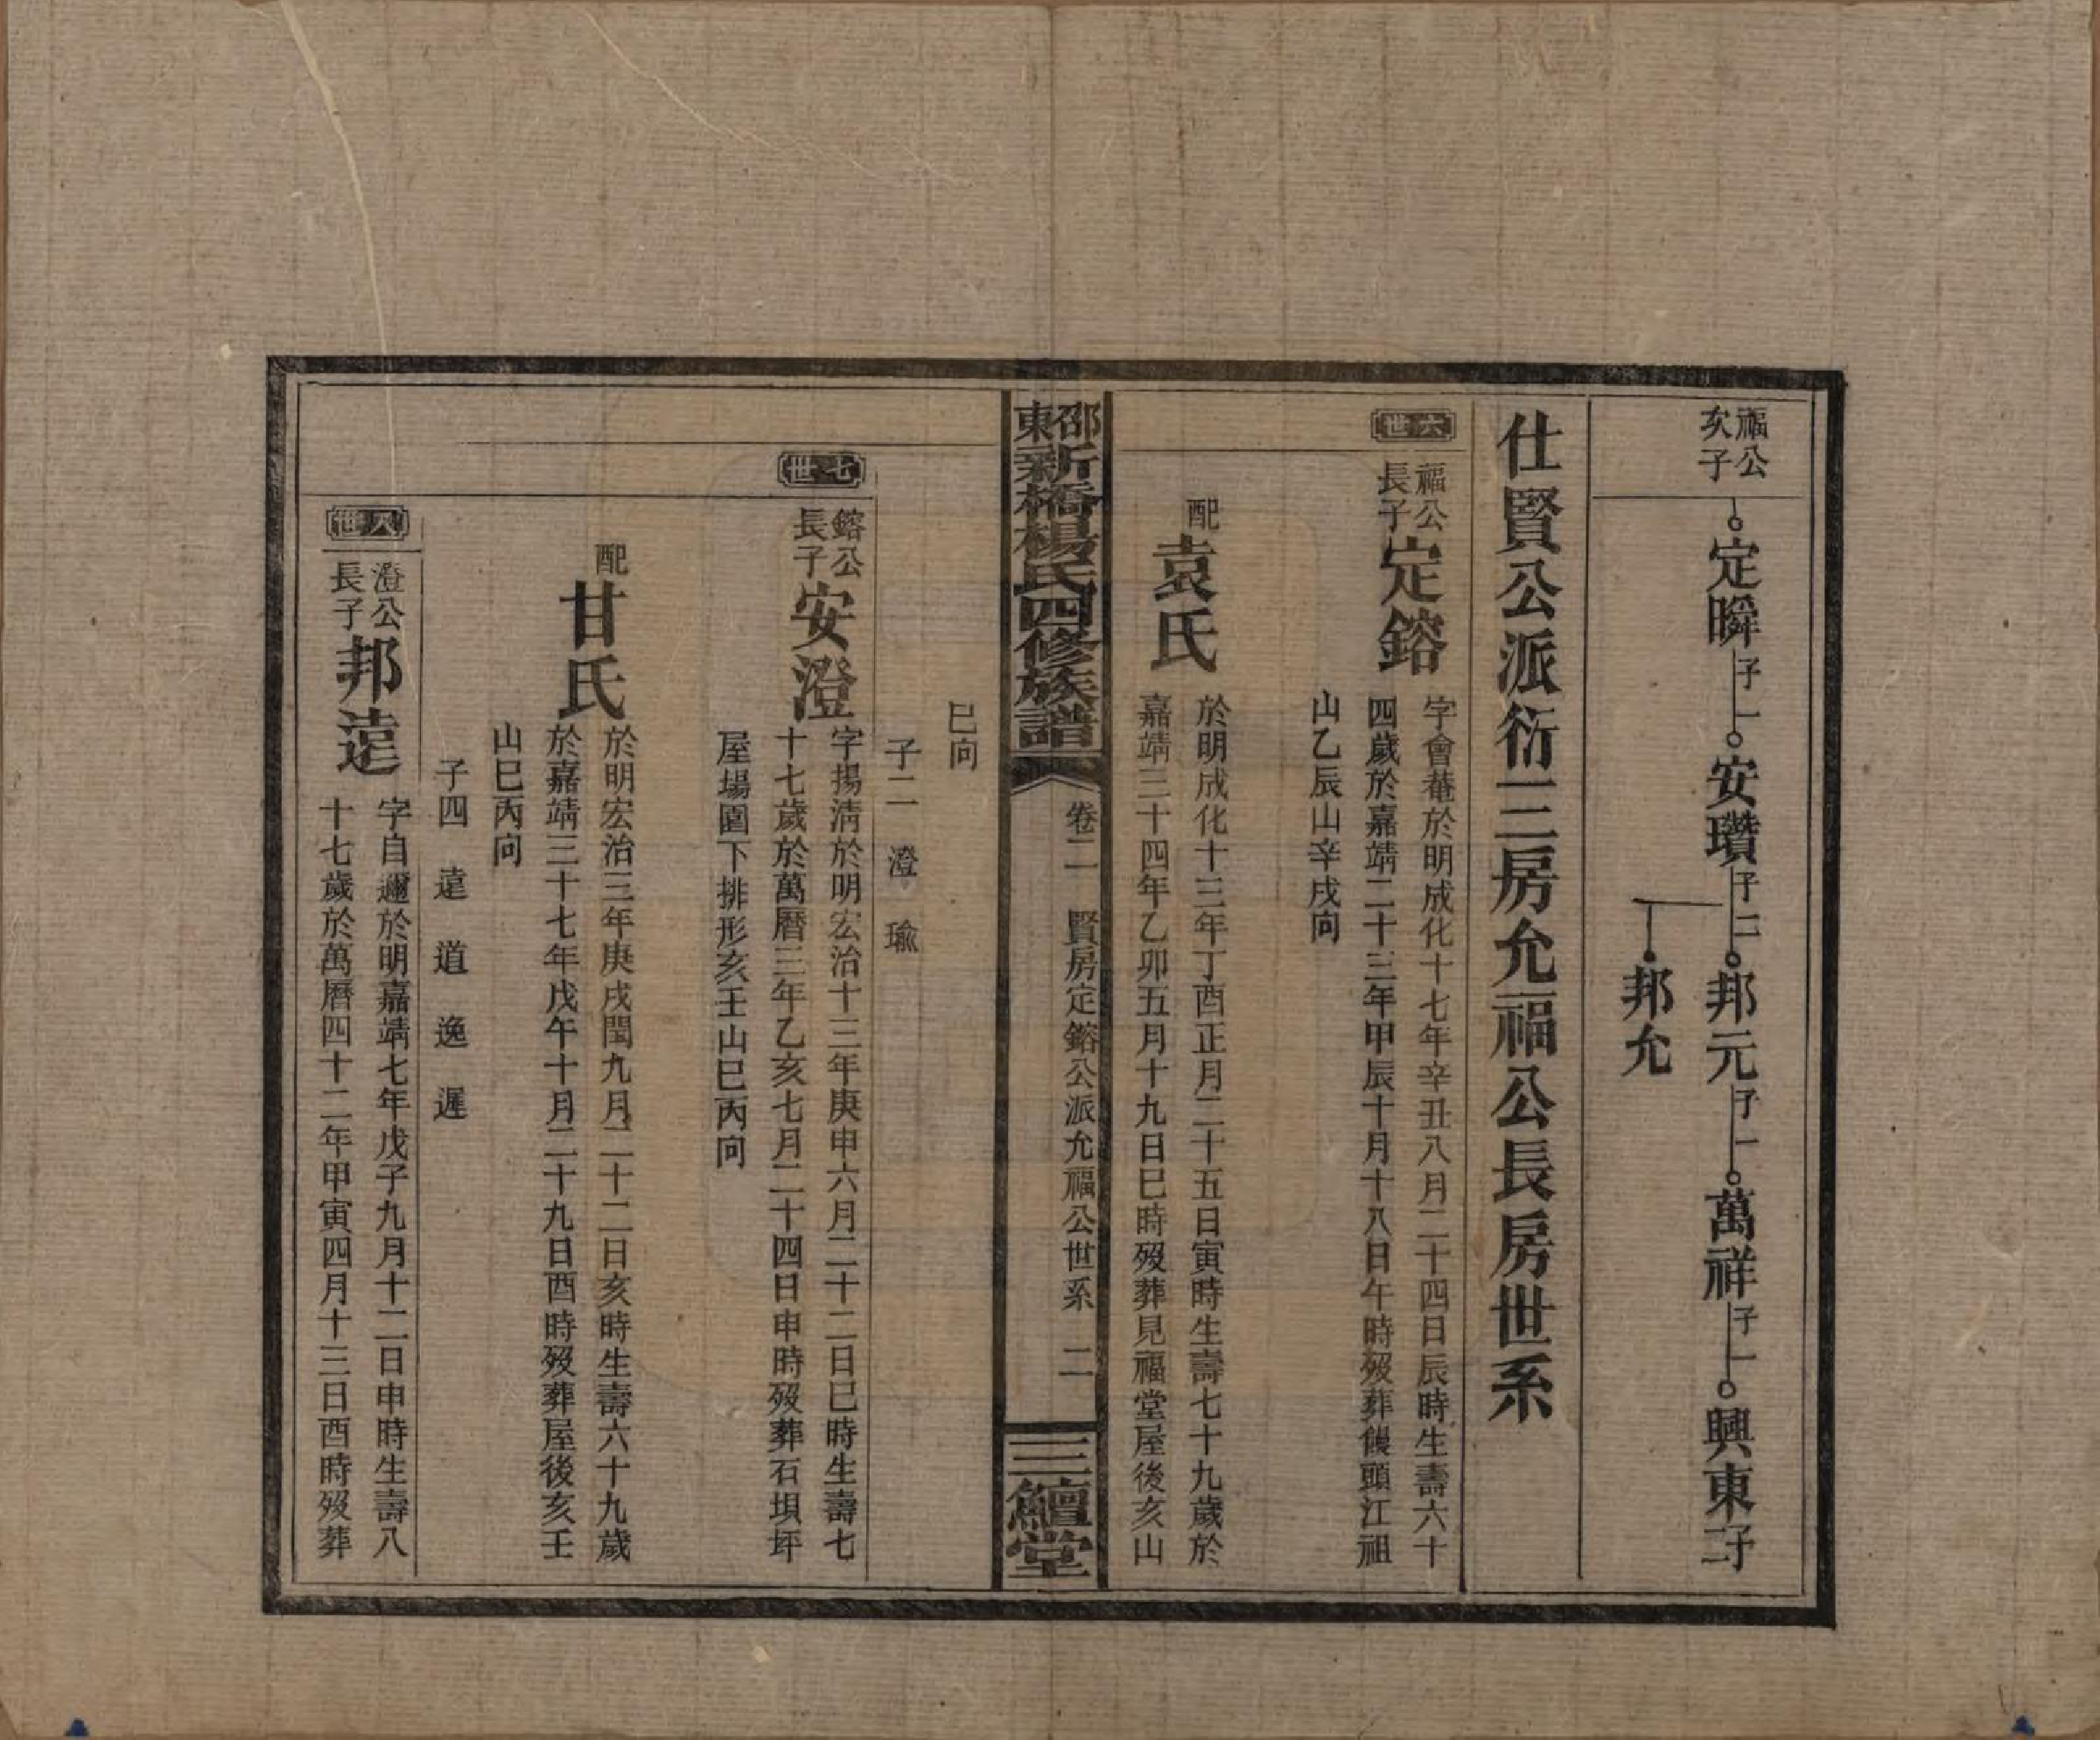 福公
次子
定瞬 子一 安瓚 子二 邦元 子一 萬祥 子一 興東 子二
邦允
仕賢公派衍三房允福公長房世系
六世
福公
長子
定鎔
字會菴於明成化十七年辛丑八月二十四日辰時生壽六十
四歲於嘉靖二十三年甲辰十月十八日午時歿葬饅頭江祖
山乙辰山辛戌向
配
袁氏
於明成化十三年丁酉正月二十五日寅時生壽七十九歲於
嘉靖三十四年乙卯五月十九日巳時歿葬見福堂屋後亥山
邵東新橋楊氏四修族譜
卷二 賢房定鎔公派允福公世系 二
三鱣堂
巳向
子二 澄 瑜
七世
鎔公
長子
安澄
字揚淸於明宏治十三年庚申六月二十二日巳時生壽七
十七歲於萬曆三年乙亥七月二十四日申時歿葬石垻坪
屋場園下排形亥壬山巳丙向
配
甘氏
於明宏治三年庚戌閏九月二十二日亥時生壽六十九歲
於嘉靖三十七年戊午十月二十九日酉時歿葬屋後亥壬
山巳丙向
子四 遠 道 逸 遲
八世
澄公
長子
邦遠
字自邇於明嘉靖七年戊子九月十二日申時生壽八
十七歲於萬曆四十二年甲寅四月十三日酉時歿葬